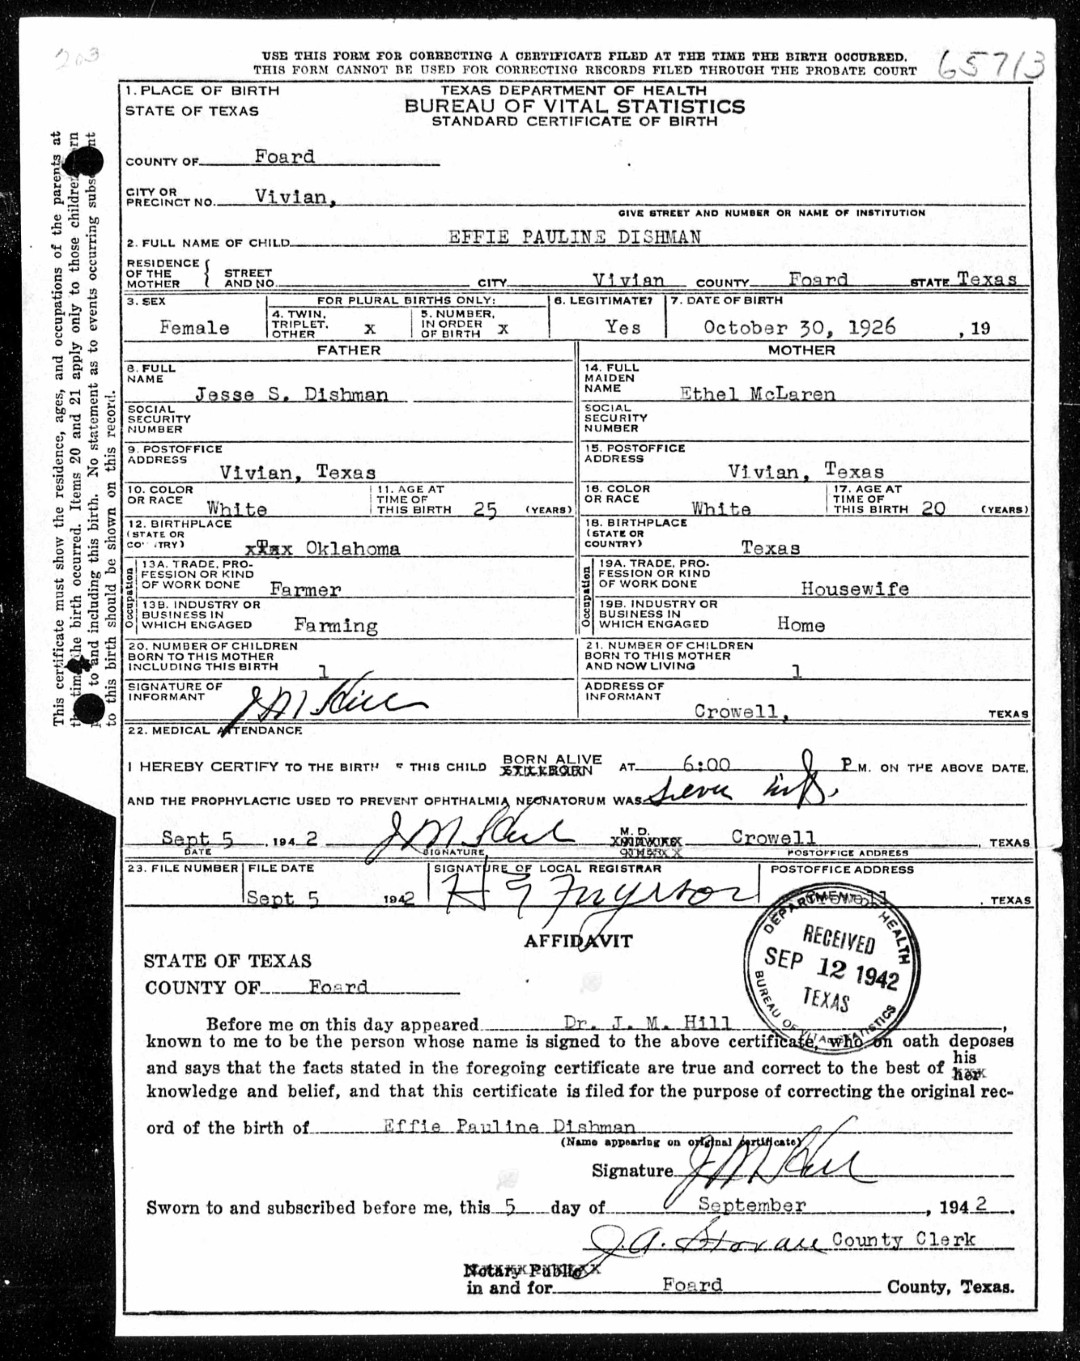 203
USE THIS FORM FOR CORRECTING A CERTIFICATE FILED AT THE TIME THE BIRTH OCCURRED.
THIS FORM CANNOT BE USED FOR CORRECTING RECORDS FILED THROUGH THE PROBATE COURT
65713
1. PLACE OF BIRTH
STATE OF TEXAS
TEXAS DEPARTMENT OF HEALTH
BUREAU OF VITAL STATISTICS
STANDARD CERTIFICATE OF BIRTH
COUNTY OF Foard
CITY OR
PRECINCT NO. Vivian,
GIVE STREET AND NUMBER OR NAME OF INSTITUTION
2. FULL NAME OF CHILD EFFIE PAULINE DISHMAN
RESIDENCE
OF THE
MOTHER
STREET
AND NO. CITY Vivian COUNTY Foard STATE Texas
3. SEX
Female
FOR PLURAL BIRTHS ONLY:
4. TWIN,
TRIPLET,
OTHER x
5. NUMBER,
IN ORDER
OF BIRTH x
6. LEGITIMATE?
Yes
7. DATE OF BIRTH
October 30, 1926 , 19
FATHER
8. FULL
NAME
Jesse S. Dishman
SOCIAL
SECURITY
NUMBER
9. POSTOFFICE
ADDRESS
Vivian, Texas
10. COLOR
OR RACE White
11. AGE AT
TIME OF
THIS BIRTH 25 (YEARS)
12. BIRTHPLACE
(STATE OR
CO TRY) xTex Oklahoma
Occupation
13A. TRADE, PRO-
FESSION OR KIND
OF WORK DONE Farmer
13B. INDUSTRY OR
BUSINESS IN
WHICH ENGAGED Farming
20. NUMBER OF CHILDREN
BORN TO THIS MOTHER
INCLUDING THIS BIRTH 1
SIGNATURE OF
INFORMANT J M Hill
MOTHER
14. FULL
MAIDEN
NAME Ethel McLaren
SOCIAL
SECURITY
NUMBER
15. POSTOFFICE
ADDRESS
Vivian, Texas
16. COLOR
OR RACE White
17. AGE AT
TIME OF
THIS BIRTH 20 (YEARS)
18. BIRTHPLACE
(STATE OR
COUNTRY) Texas
Occupation
19A. TRADE, PRO-
FESSION OR KIND
OF WORK DONE Housewife
19B. INDUSTRY OR
BUSINESS IN
WHICH ENGAGED Home
21. NUMBER OF CHILDREN
BORN TO THIS MOTHER
AND NOW LIVING 1
ADDRESS OF
INFORMANT
Crowell, TEXAS
22. MEDICAL ATTENDANCE
I HEREBY CERTIFY TO THE BIRTH F THIS CHILD BORN ALIVE STILLBORN AT 6:00 P M. ON THE ABOVE DATE.
AND THE PROPHYLACTIC USED TO PREVENT OPHTHALMIA NEONATORUM WAS
Sept 5 , 1942 J M Hill M. D. Crowell , TEXAS
DATE SIGNATURE POSTOFFICE ADDRESS
23. FILE NUMBER
FILE DATE
Sept 5 1942
SIGNATURE OF LOCAL REGISTRAR
POSTOFFICE ADDRESS
, TEXAS
DEPARTMENT OF HEALTH
RECEIVED
SEP 12 1942
TEXAS
BUREAU OF VITAL STATISTICS
AFFIDAVIT
STATE OF TEXAS
COUNTY OF Foard
Before me on this day appeared Dr. J. M. Hill ,
known to me to be the person whose name is signed to the above certificate, who on oath deposes
and says that the facts stated in the foregoing certificate are true and correct to the best of his her
knowledge and belief, and that this certificate is filed for the purpose of correcting the original rec-
ord of the birth of Effie Pauline Dishman
(Name appearing on original certificate)
Signature J M Hill
Sworn to and subscribed before me, this 5 day of September , 1942 .
J. A. County Clerk
Notary Public
in and for Foard County, Texas.
This certificate must show the residence, ages, and occupations of the parents at
the time the birth occurred. Items 20 and 21 apply only to those children born
to and including this birth. No statement as to events occurring subsequent
to this birth should be shown on this record.